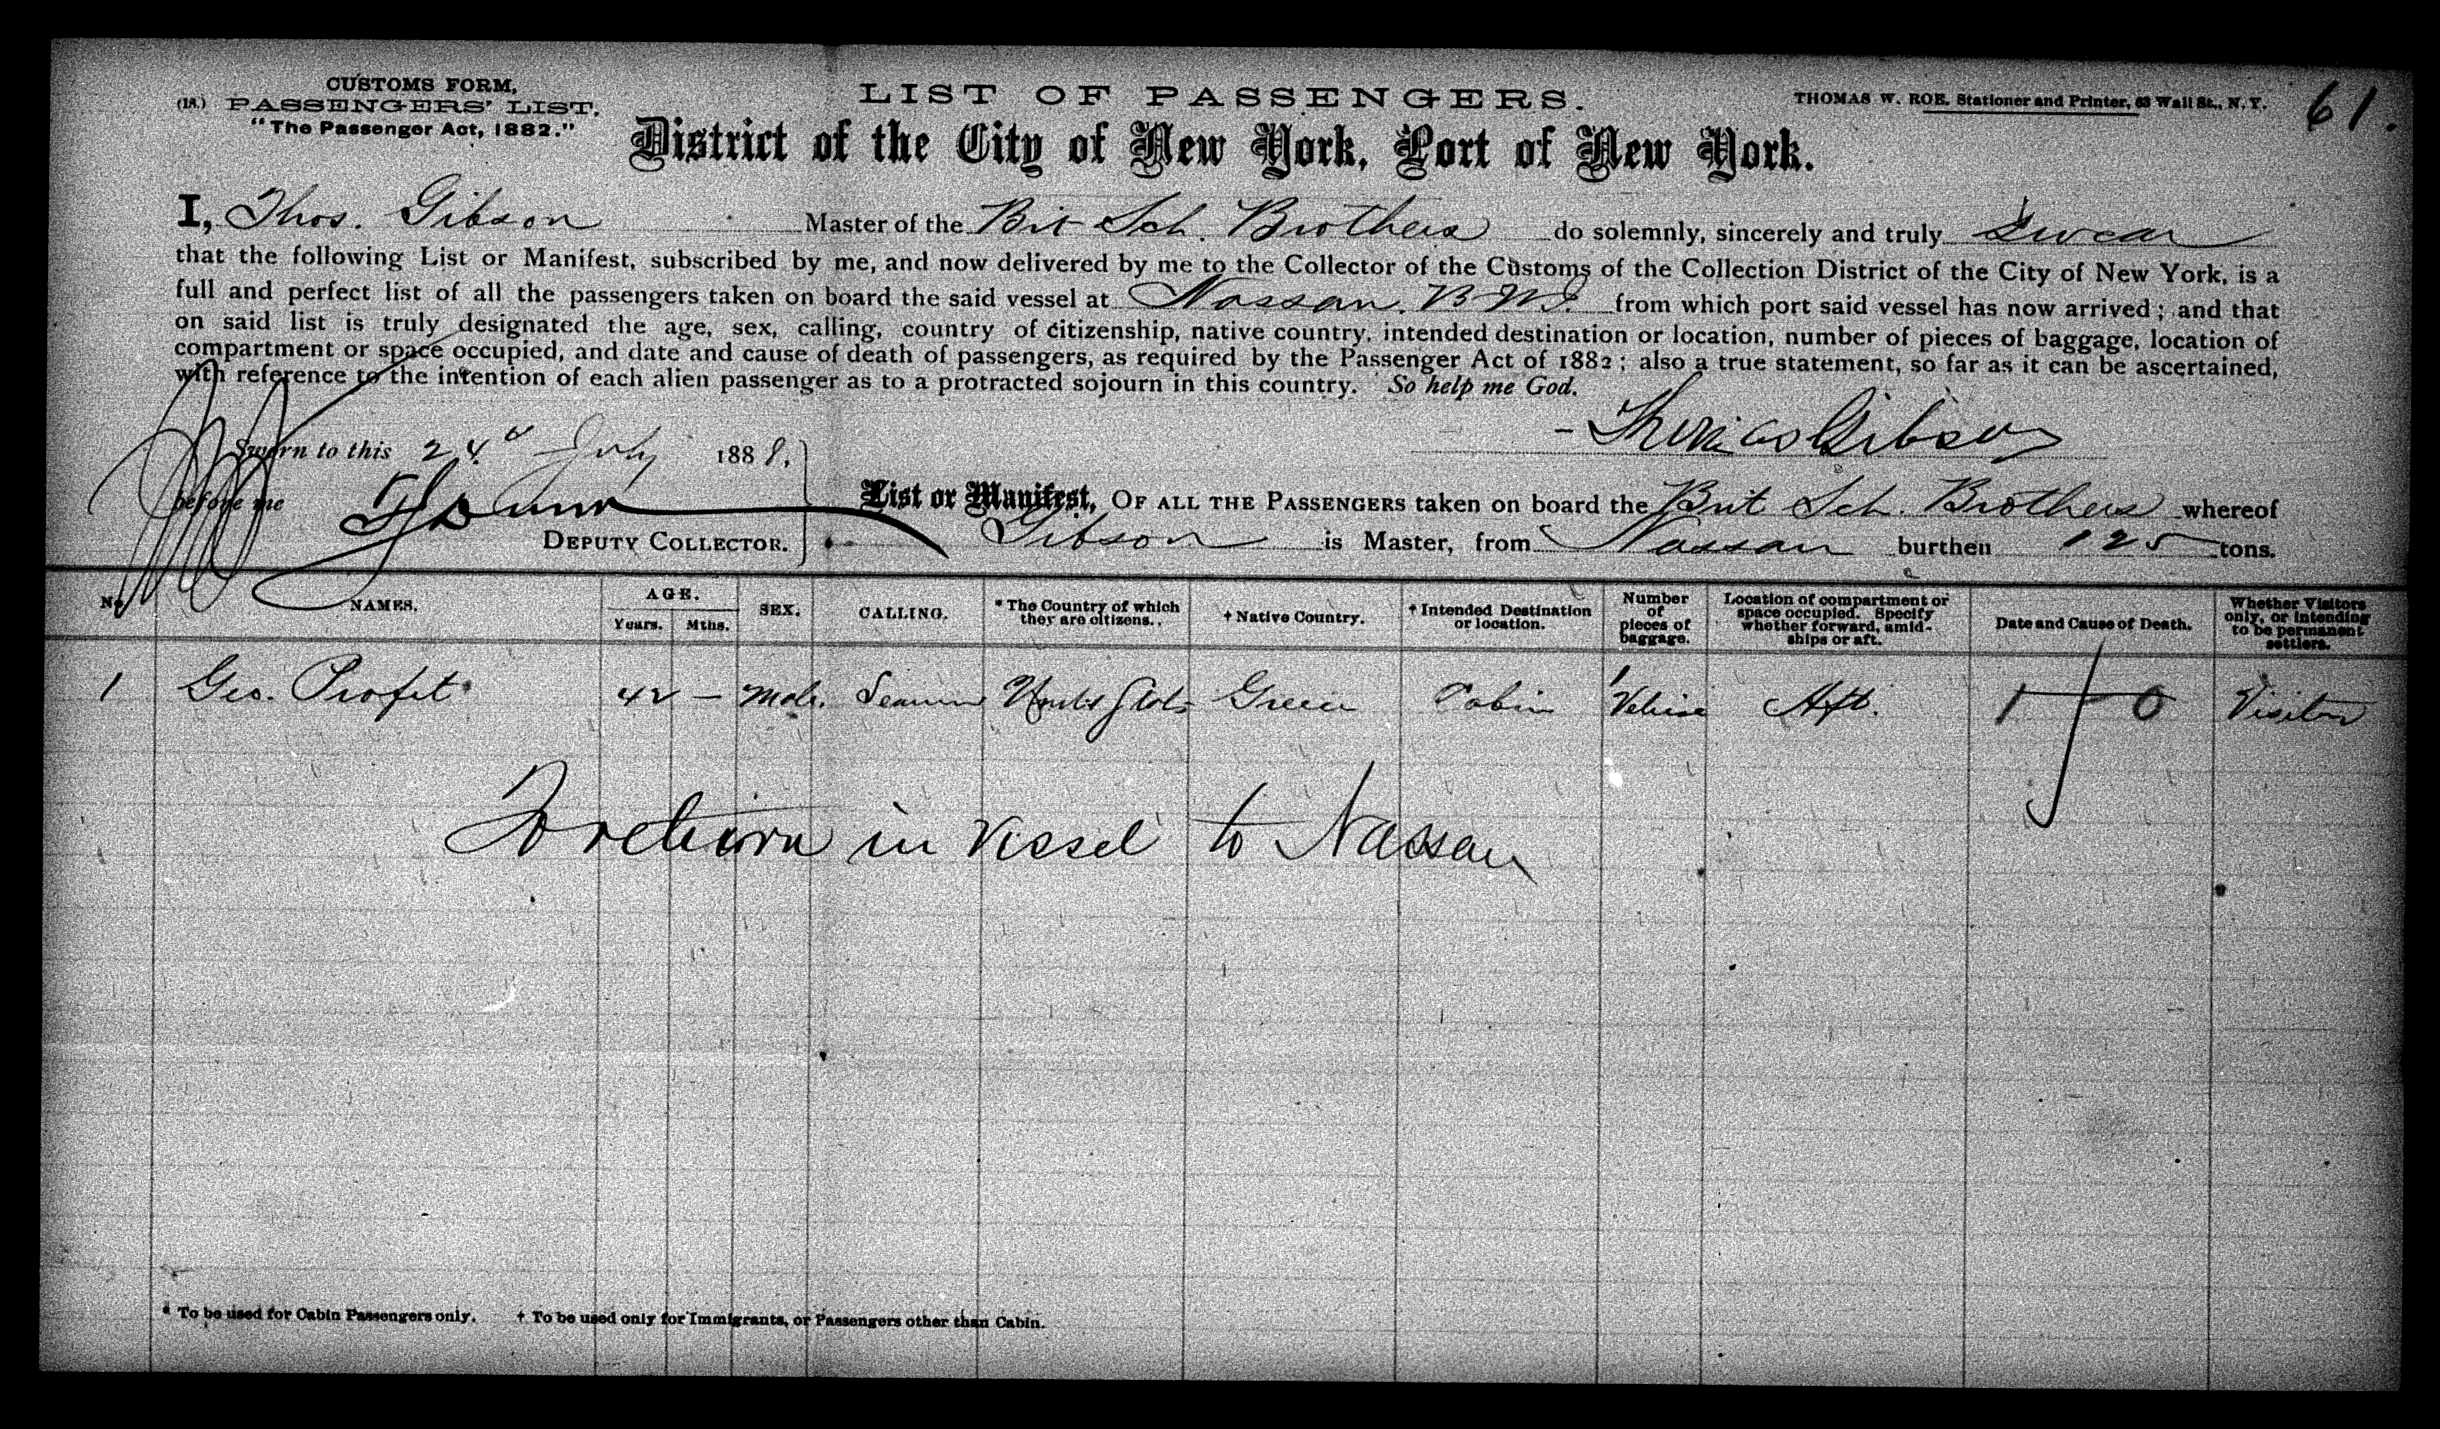 CUSTOMS FORM,
(18.) PASSENGERS' LIST.
"The Passenger Act, 1882."
LIST OF PASSENGERS.
THOMAS W. ROE, Stationer and Printer, 63 Wall St., N. Y.
61.
District of the City of New York, Port of New York.
I, Thos. Gibson Master of the Brit Sch. Brothers do solemnly, sincerely and truly Swear
that the following List or Manifest, subscribed by me, and now delivered by me to the Collector of the Customs of the Collection District of the City of New York, is a
full and perfect list of all the passengers taken on board the said vessel at Nassau. from which port said vessel has now arrived; and that
on said list is truly designated the age, sex, calling, country of citizenship, native country, intended destination or location, number of pieces of baggage, location of
compartment or space occupied, and date and cause of death of passengers, as required by the Passenger Act of 1882; also a true statement, so far as it can be ascertained,
with reference to the intention of each alien passenger as to a protracted sojourn in this country. So help me God.
Thomas Gibson
Sworn to this 24 July 188
before me
DEPUTY COLLECTOR.
List or Manifest, OF ALL THE PASSENGERS taken on board the Brit Sch. Brothers whereof
Gibson is Master, from Nassau burthen 125 tons.
No. NAMES. AGE. Years. Mths. SEX. CALLING. * The Country of which they are citizens. † Native Country. † Intended Destination or location. Number of pieces of baggage. Location of compartment or space occupied. Specify whether forward, amidships or aft. Date and Cause of Death. Whether Visitors only, or intending to be permanent settlers.
1 Geo. Profit 42 — Male. Seaman United States Greece Cabin 1 Velise Aft. Visitor
To return in vessel to Nassau
* To be used for Cabin Passengers only. † To be used only for Immigrants, or Passengers other than Cabin.